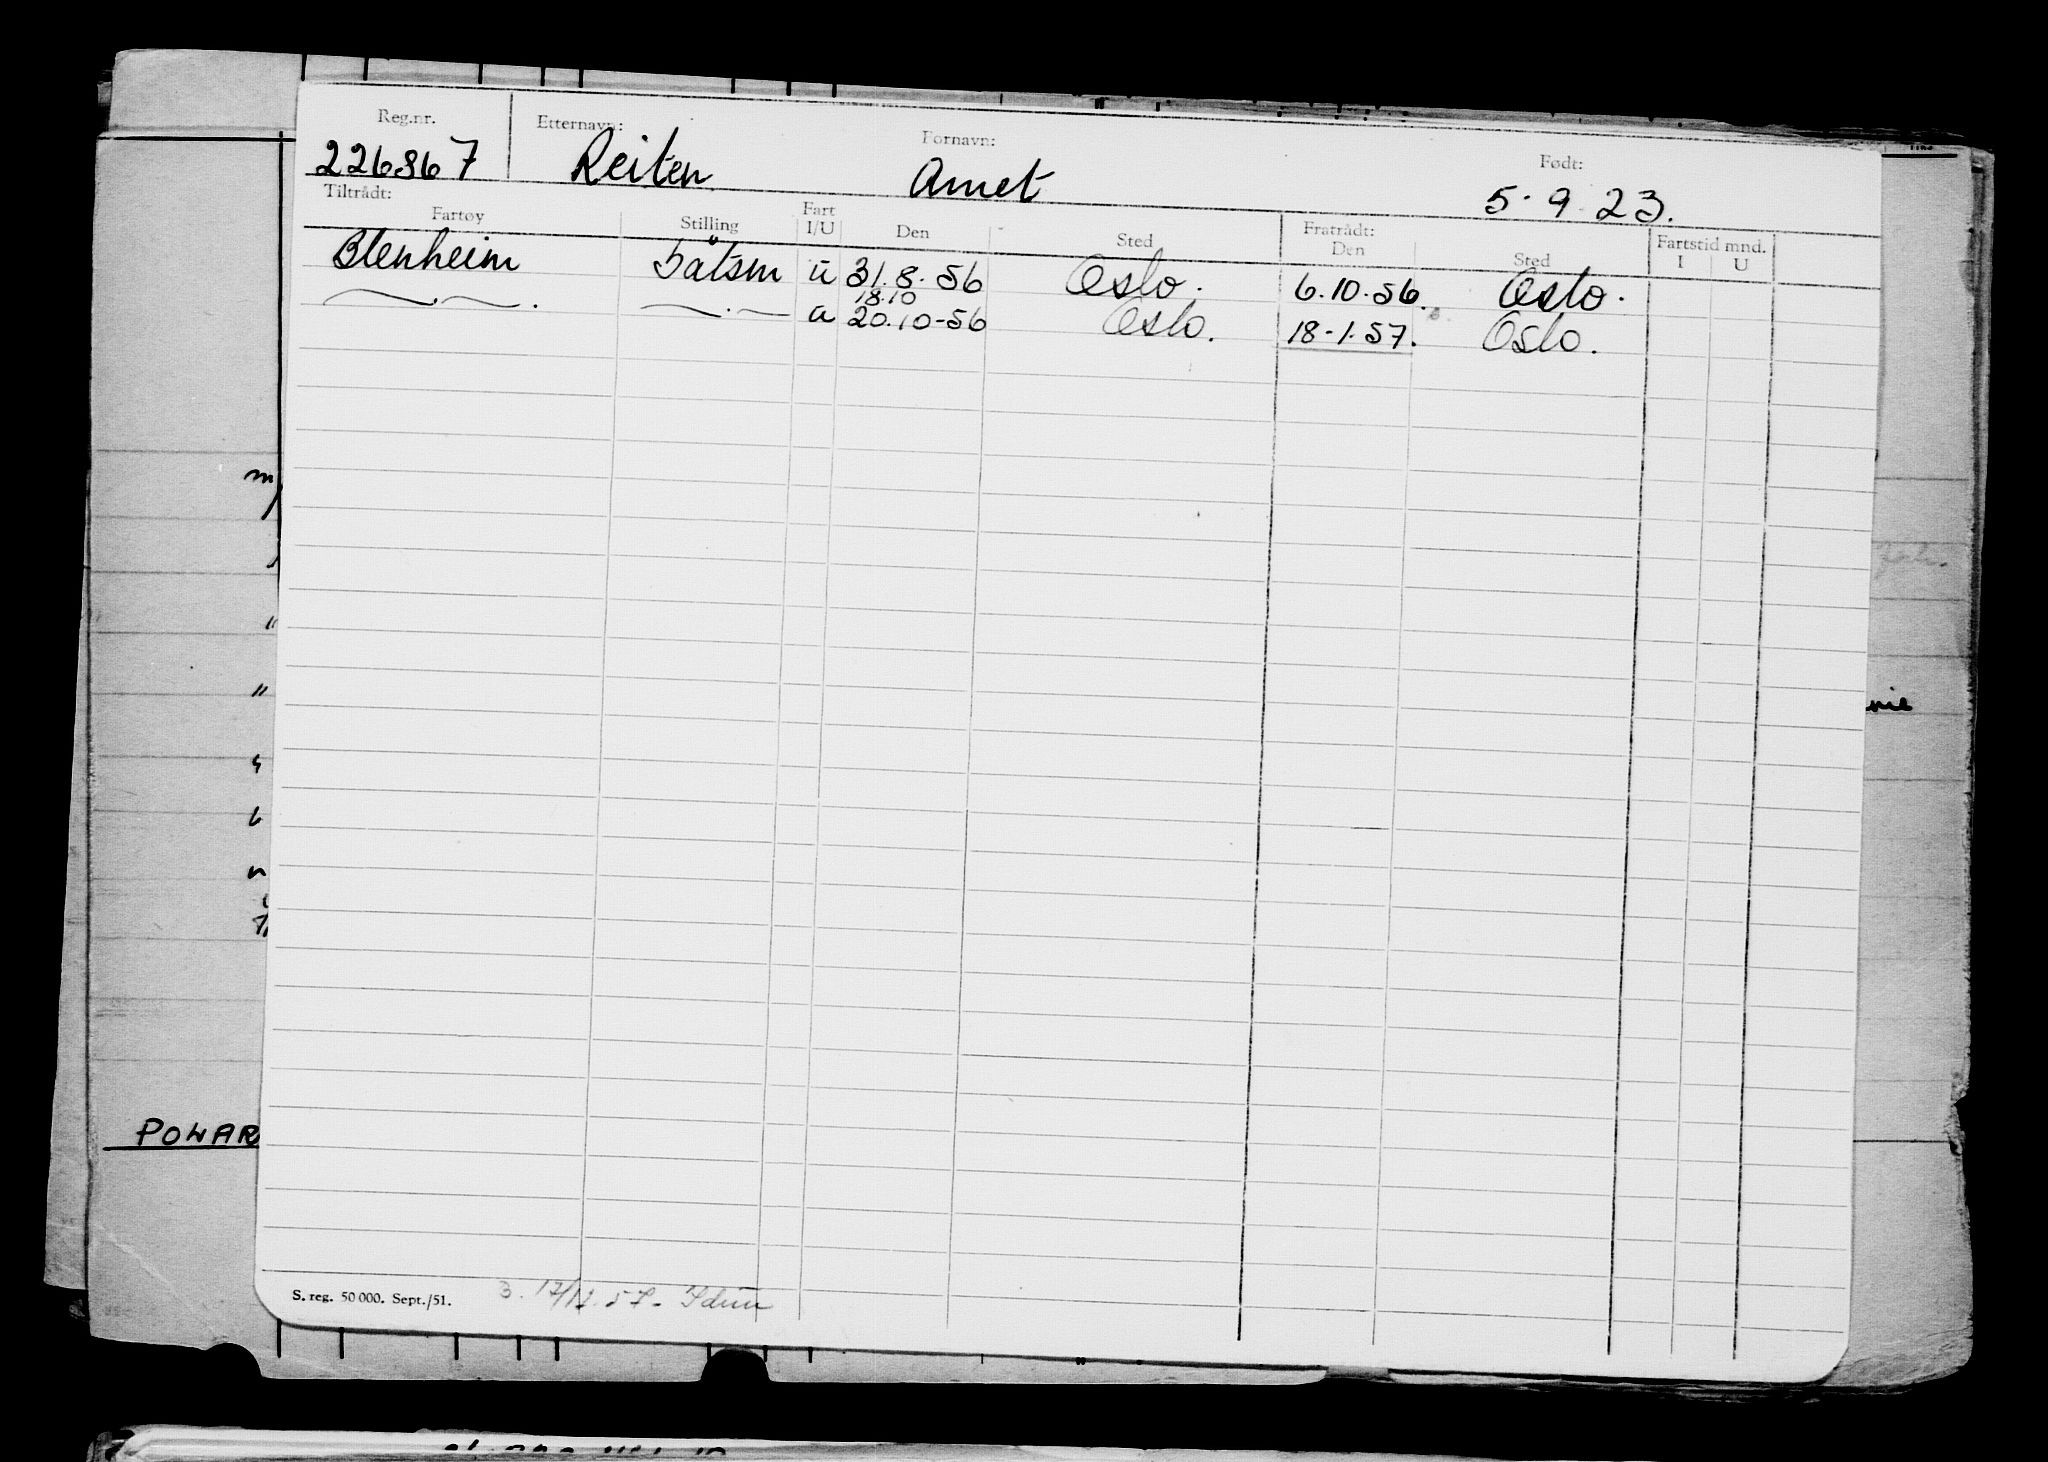 Reg.nr. Etternavn: Fornavn: Født:
226867 Reiten Arnet 5.9.23.
Tiltrådt: Fratrådt:
Fartøy Stilling Fart I/U Den Sted Den Sted Fartstid mnd. I U
Blenheim båtsm u 31.8.56 Oslo. 6.10.56. Oslo.
18.10
u 20.10-56 Oslo. 18-1.57. Oslo.
POLAR
S. reg. 50 000. Sept./51. 3. 17/12.57- Idun